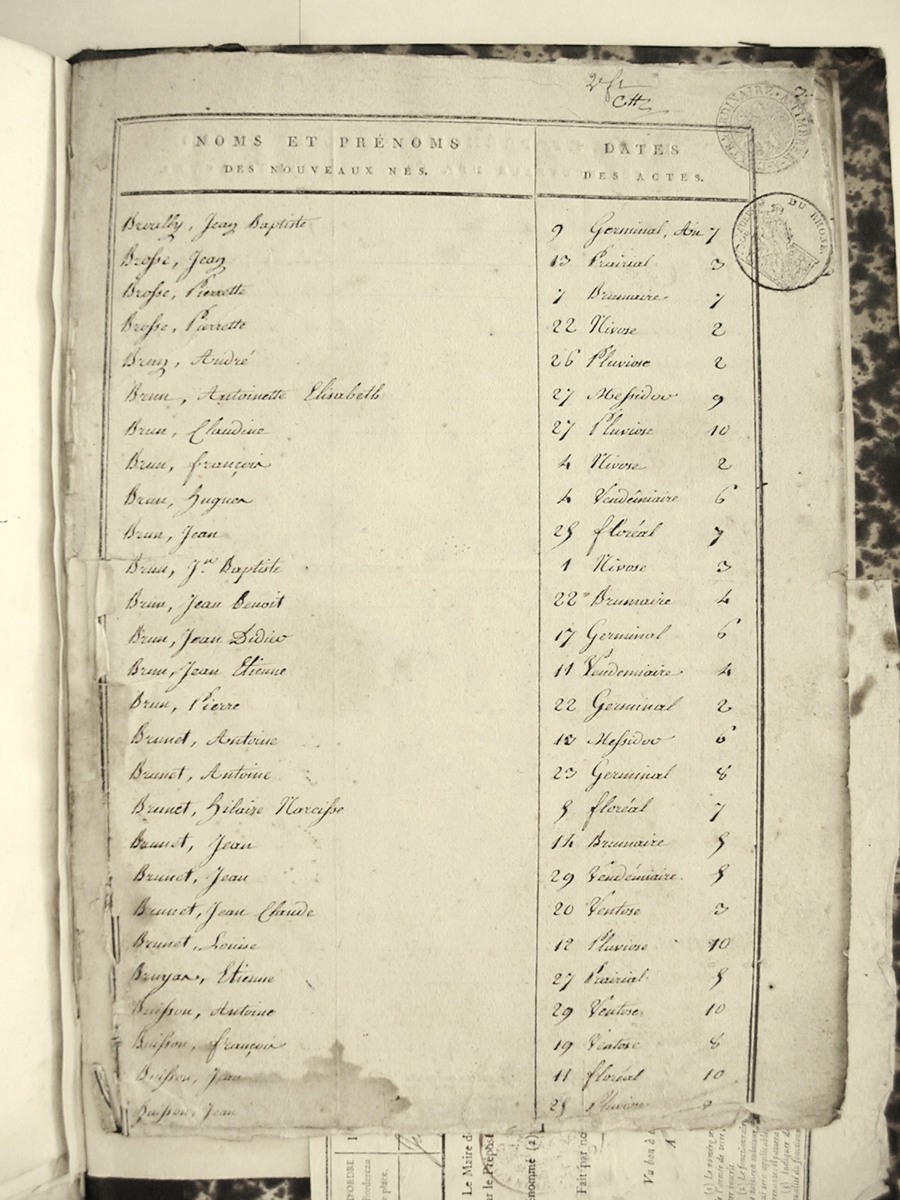 NOMS ET PRÉNOMS DATES
DES NOUVEAUX NÉS. DES ACTES.
Brouilly, Jean Baptiste 9 Germinal, An 7
Brosse, Jean 13 Prairial 3
Brosse, Pierrette 7 Brumaire 7
Brosse, Pierrette 22 Nivose 2
Brun, André 26 Pluviose 2
Brun, Antoinette Elisabeth 27 Messidor 9
Brun, Claudine 27 Pluviose 10
Brun, françois 4 Nivose 2
Brun, Hugues 4 Vendémiaire 6
Brun, Jean 25 floréal 7
Brun, Jn Baptiste 1 Nivose 3
Brun, Jean Benoit 22 Brumaire 4
Brun, Jean Didier 17 Germinal 6
Brun, Jean Etienne 11 Vendemiaire 4
Brun, Pierre 22 Germinal 2
Brunet, Antoine Messidor 6
Brunet, Antoine 23 Germinal 8
Brunet, Hilaire Narcisse 5 floréal 7
Brunet, Jean 14 Brumaire 5
Brunet, Jean 29 Vendémiaire 5
Brunet, Jean Claude 20 Ventose 3
Brunet, Louise 12 Pluviose 10
Bruyas, Etienne 27 Prairial 5
Buisson, Antoine 29 Ventose 10
Buisson, françois 19 Ventose 8
Buisson, Jean 11 floréal 10
Buisson, Jean 25 Pluviose
DU RHONE
Le Maire de